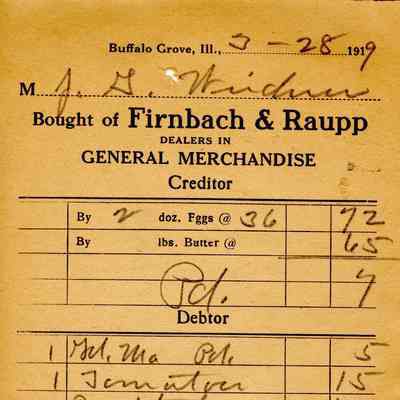 Buffalo Grove, Ill., 3 - 28 1919
M J. G. 
Bought of Firnbach & Raupp
DEALERS IN
GENERAL MERCHANDISE
Creditor
By 2 doz. Eggs @ 36 72
By lbs. Butter @ 65
Pd. 7
Debtor
1 Pd. 5
1 Tomatoes 15